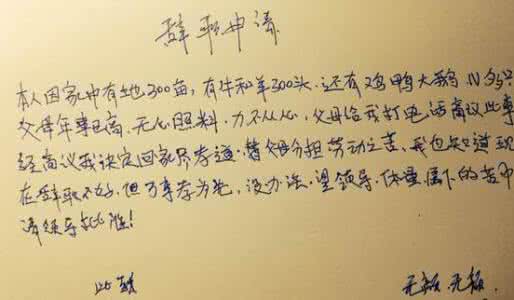 辞职申请
本人因家中有土地300亩,有牛和羊300头.还有鸡鸭大鹅
父母年事已高.无心照料.力不从心,父母给我打电话商议此事
经商议我决定回家尽孝道.替父母分担劳动之苦.我也知道现
在辞职不好.但百事孝为先,没办法.望领导.体量属下的苦中
请领导批准!
此致